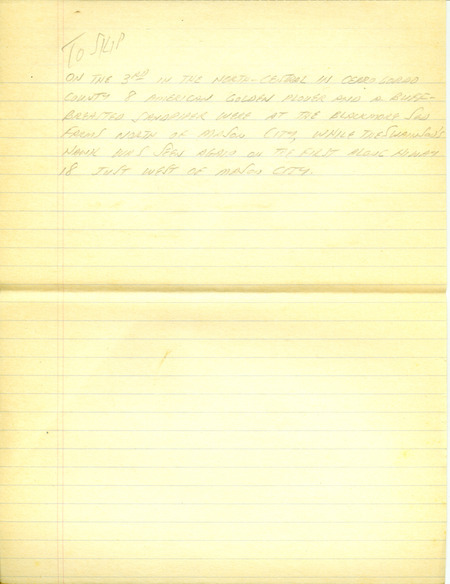 TO SKIP
ON THE 3RD IN THE NORTH-CENTRAL IN CERRO GORDO
COUNTY 8 AMERICAN GOLDEN PLOVER AND A BUFF-
BREASTED SANDPIPER WERE AT THE BLACKMORE SOD
FARMS NORTH OF MASON CITY, WHILE THE SWAINSON'S
HAWK WAS SEEN AGAIN ON THE FIRST ALONG HIWAY
18 JUST WEST OF MASON CITY.